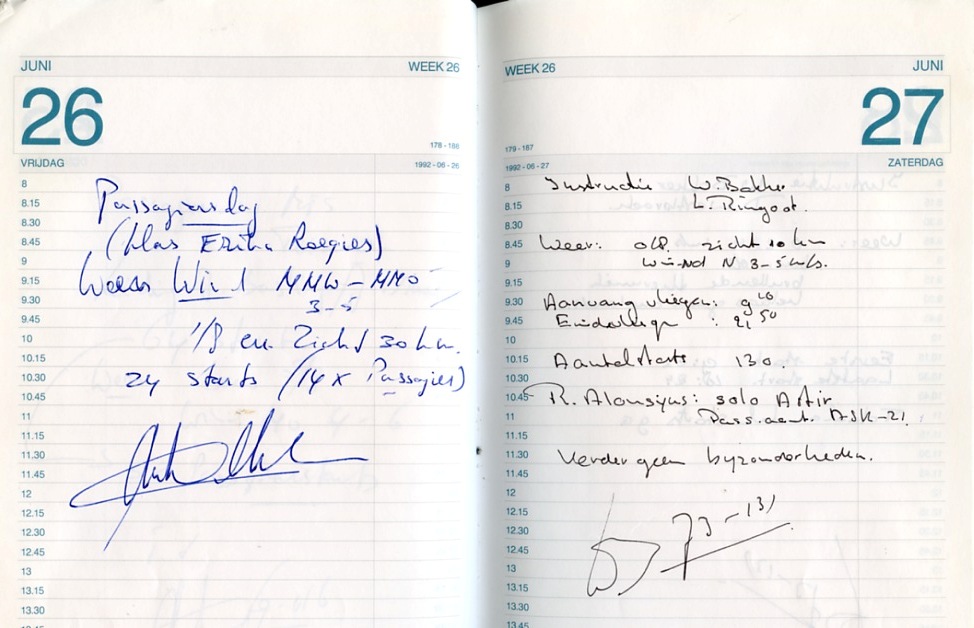 JUNI WEEK 26
26
178 - 188
VRIJDAG 1992 - 06 - 26
8
8.15 Passagiersdag
8.30
8.45 (klas Erika Roegies)
9
9.15 Weer Wind NNW - NNO
9.30 3-5
9.45
10 1/8 cu. Zicht 30 km.
10.15
10.30 24 starts (14 x Passagier)
10.45
11
11.15
11.30
11.45
12
12.15
12.30
12.45
13
13.15
13.30
WEEK 26 JUNI
27
179 - 187
1992 - 06 - 27 ZATERDAG
8 Instructie W. Bakker
8.15 L. Ringoot.
8.30
8.45 Weer: 0/8. zicht 10 km
9 Wind N 3-5 m/s.
9.15
9.30 Aanvang vliegen: 9 10
9.45 Einde vliegen : 21 50
10
10.15 Aantal starts 130.
10.30
10.45 R. Aloysius: solo Astir
11 Pass. aant. ASK-21.
11.15
11.30 Verder geen byzonderheden.
11.45
12
12.15 73-131
12.30
12.45
13
13.15
13.30
13.45